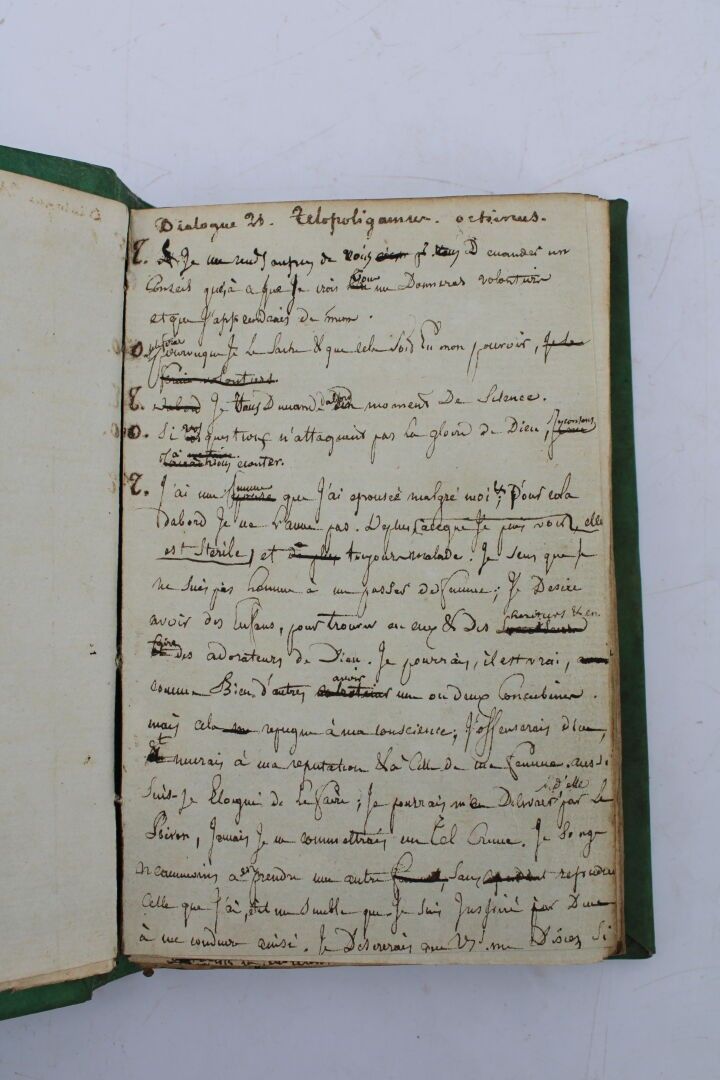 Dialogue 21. Telopoligamus. ochinus.
T. Je me rends aupres de vous pr. vous Demander un
Conseil que je crois me Donneras volontier
et que J'apprendrais de mem .
O. pourvuque Je le sache & que cela soit En mon pouvoir, Je le
ferais volontiers.
T. Dabord Je Vous Demande dabord un moment De Silence.
O. Si vos questions n'attaquent pas la gloire de Dieu, J'y consens
écouter.
T. J'ai une femme que J'ai epousée malgré moi ; Pour cela
Dabord Je ne l'aime pas. Deplus (aceque Je puis voir, elle
est Sterile) et toujours malade. Je sens que Je
ne suis pas homme à me passer de femme ; Je Desire
avoir des Enfans, pour trouver en eux & Des heritiers & en
faire des adorateurs de Dieu. Je pourrais, il est vrai,
comme Bien d'autres avoir une ou deux Concubines.
mais cela repugne à ma conscience ; J'offenserais dieu,
et nuirais à ma reputation & à Celle de ma femme. aussi
suis-Je Eloigné de le faire ; Je pourrais m'en Delivrer d'elle par le
Poison, Jamais Je ne commettrais un tel Crime. Je songe
neanmoins à en prendre une autre sans repudier
Celle que J'ai, et il me semble que Je suis Inspiré par Dieu
à me conduire ainsi. Je Desirerais que Vs. me Disiez Si